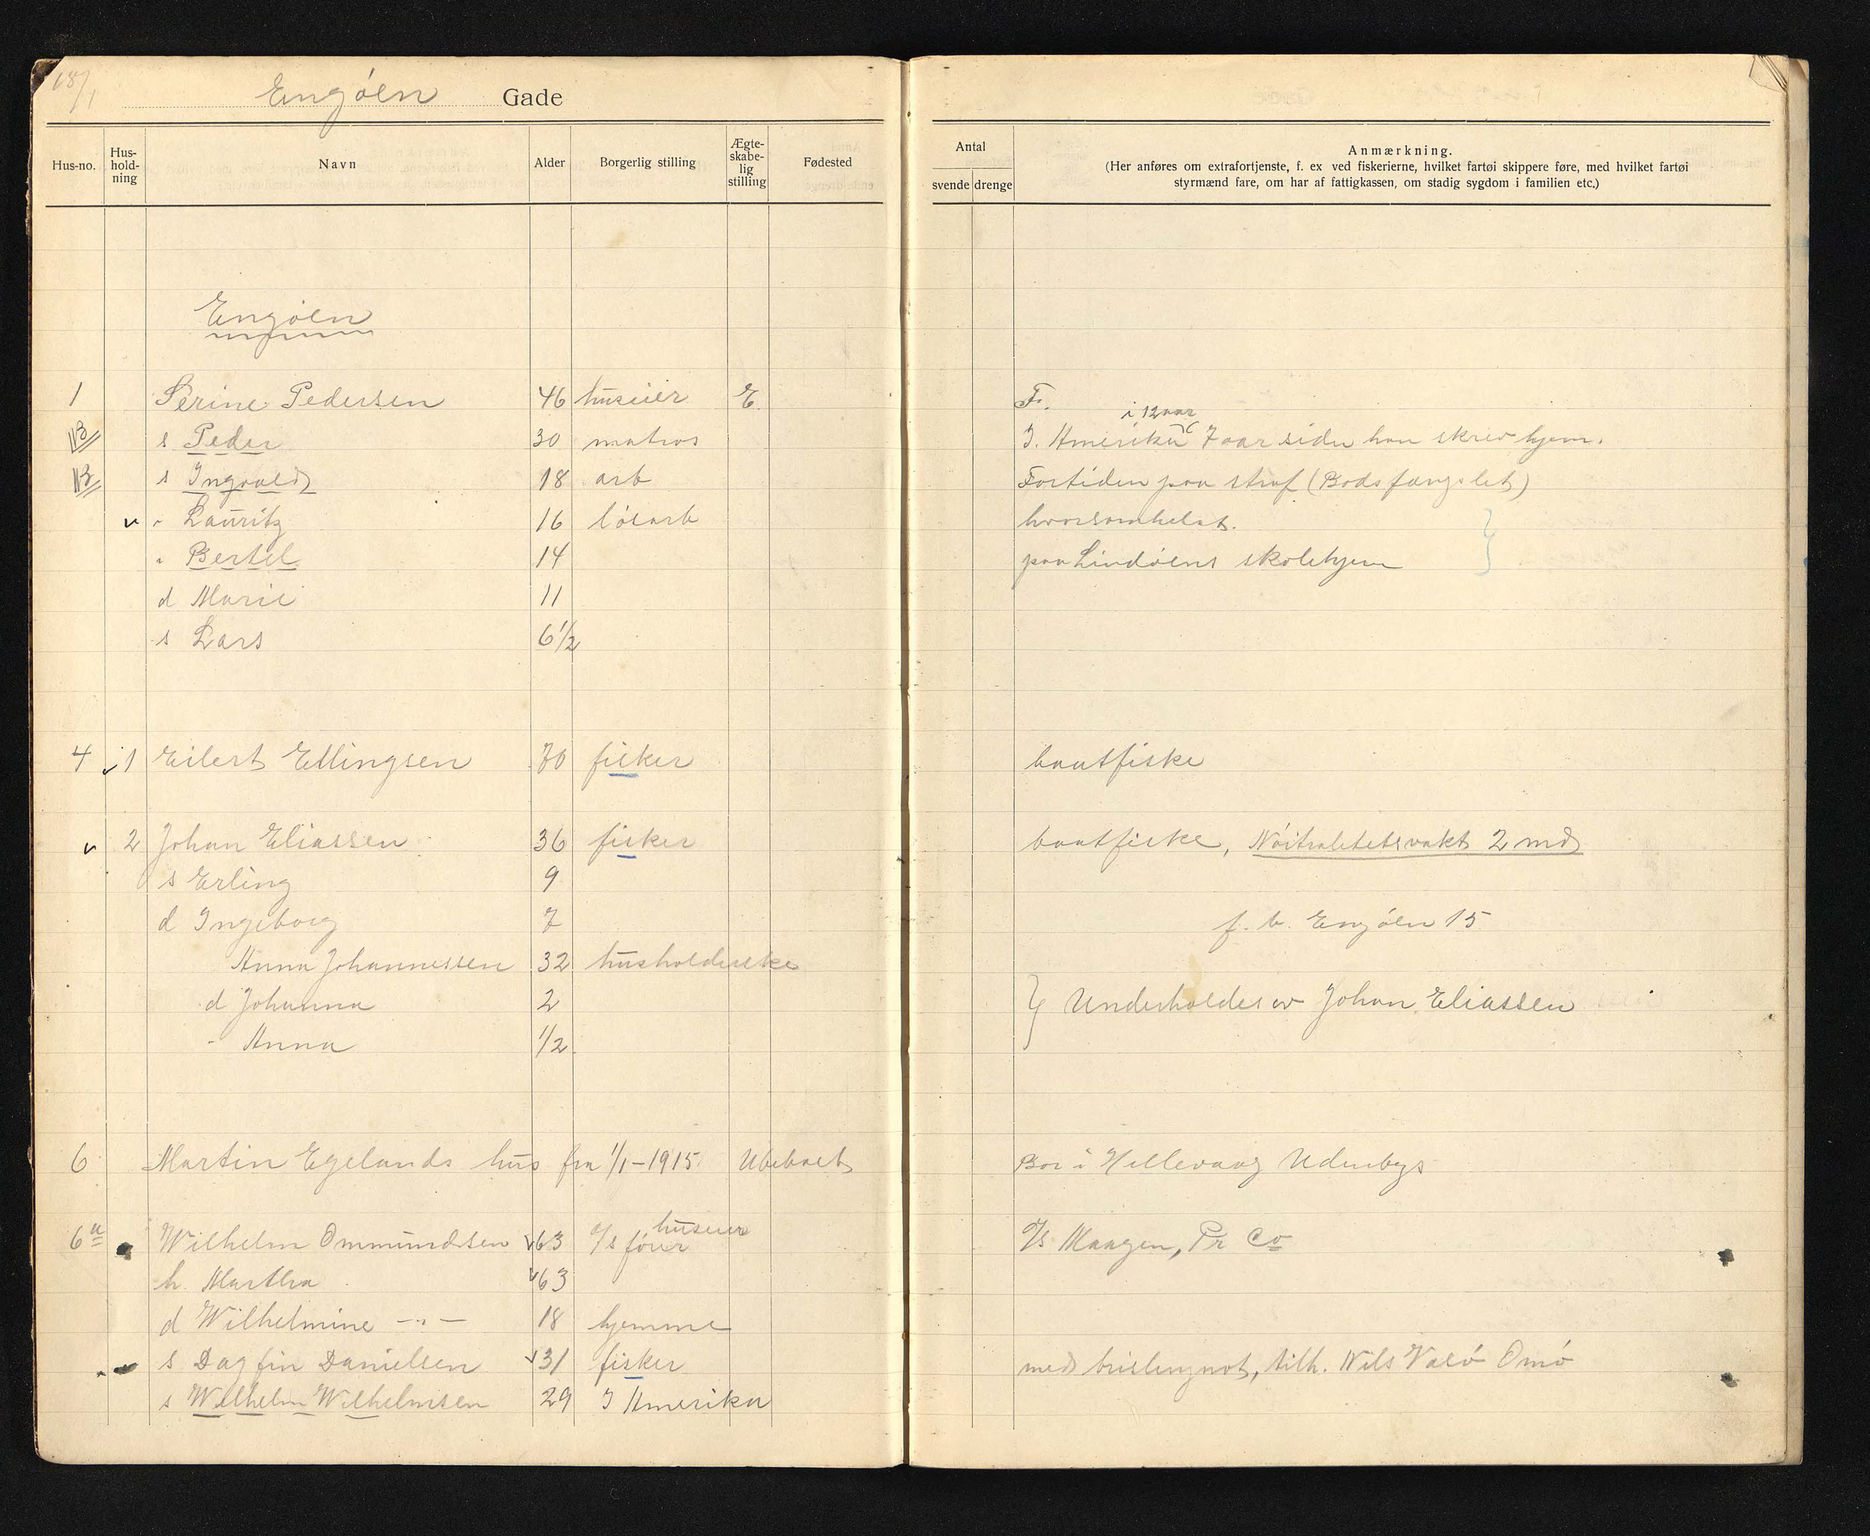 Engøen Gade
Hus-no. Hus-hold-ning Navn Alder Borgerlig stilling Ægte-skabe-lig stilling Fødested
Antal svende drenge Anmærkning.
(Her anføres om extrafortjenste, f. ex ved fiskerierne, hvilket fartøi skippere føre, med hvilket fartøi
styrmænd fare, om har af fattigkassen, om stadig sygdom i familien etc.)
Engøen
1 Serine Pedersen 46 huseier E. F.
i 12 aar
s Peder 30 matros I. Amerika 7 aar siden han skrev hjem.
s Ingvald 18 arb Fortiden paa straf (Bodsfængslet)
" Lauritz 16 løsarb hvorsomhelst.
" Bertel 14 paa Lindøens skolehjem
d Marie 11
s Lars 6 1/2
4 1 Eilert Ellingsen 70 fisker baatfiske
2 Johan Eliassen 36 fisker baatfiske, Nøitralitetsvakt 2 md
s Erling 9
d Ingeborg 7 f. b. Engøen 15
Anna Johannessen 32 husholderske
d Johanna 2 } Underholdes av Johan Eliassen
" Anna 1/2
6 Martin Egelands hus fra 1/1-1915 Ubeboet Bor i Hillevaag Udenbys
huseier
6a Wilhelm Ommundsen 63 d/s fører d/s Maagen, Pr Co
h. Martha 63
d Wilhelmine -"- 18 hjemme
s Dagfin Danielsen 31 fisker med brislingnot, tilh. Nils Valø Omø
s Wilhelm Wilhelmsen 29 I Amerika